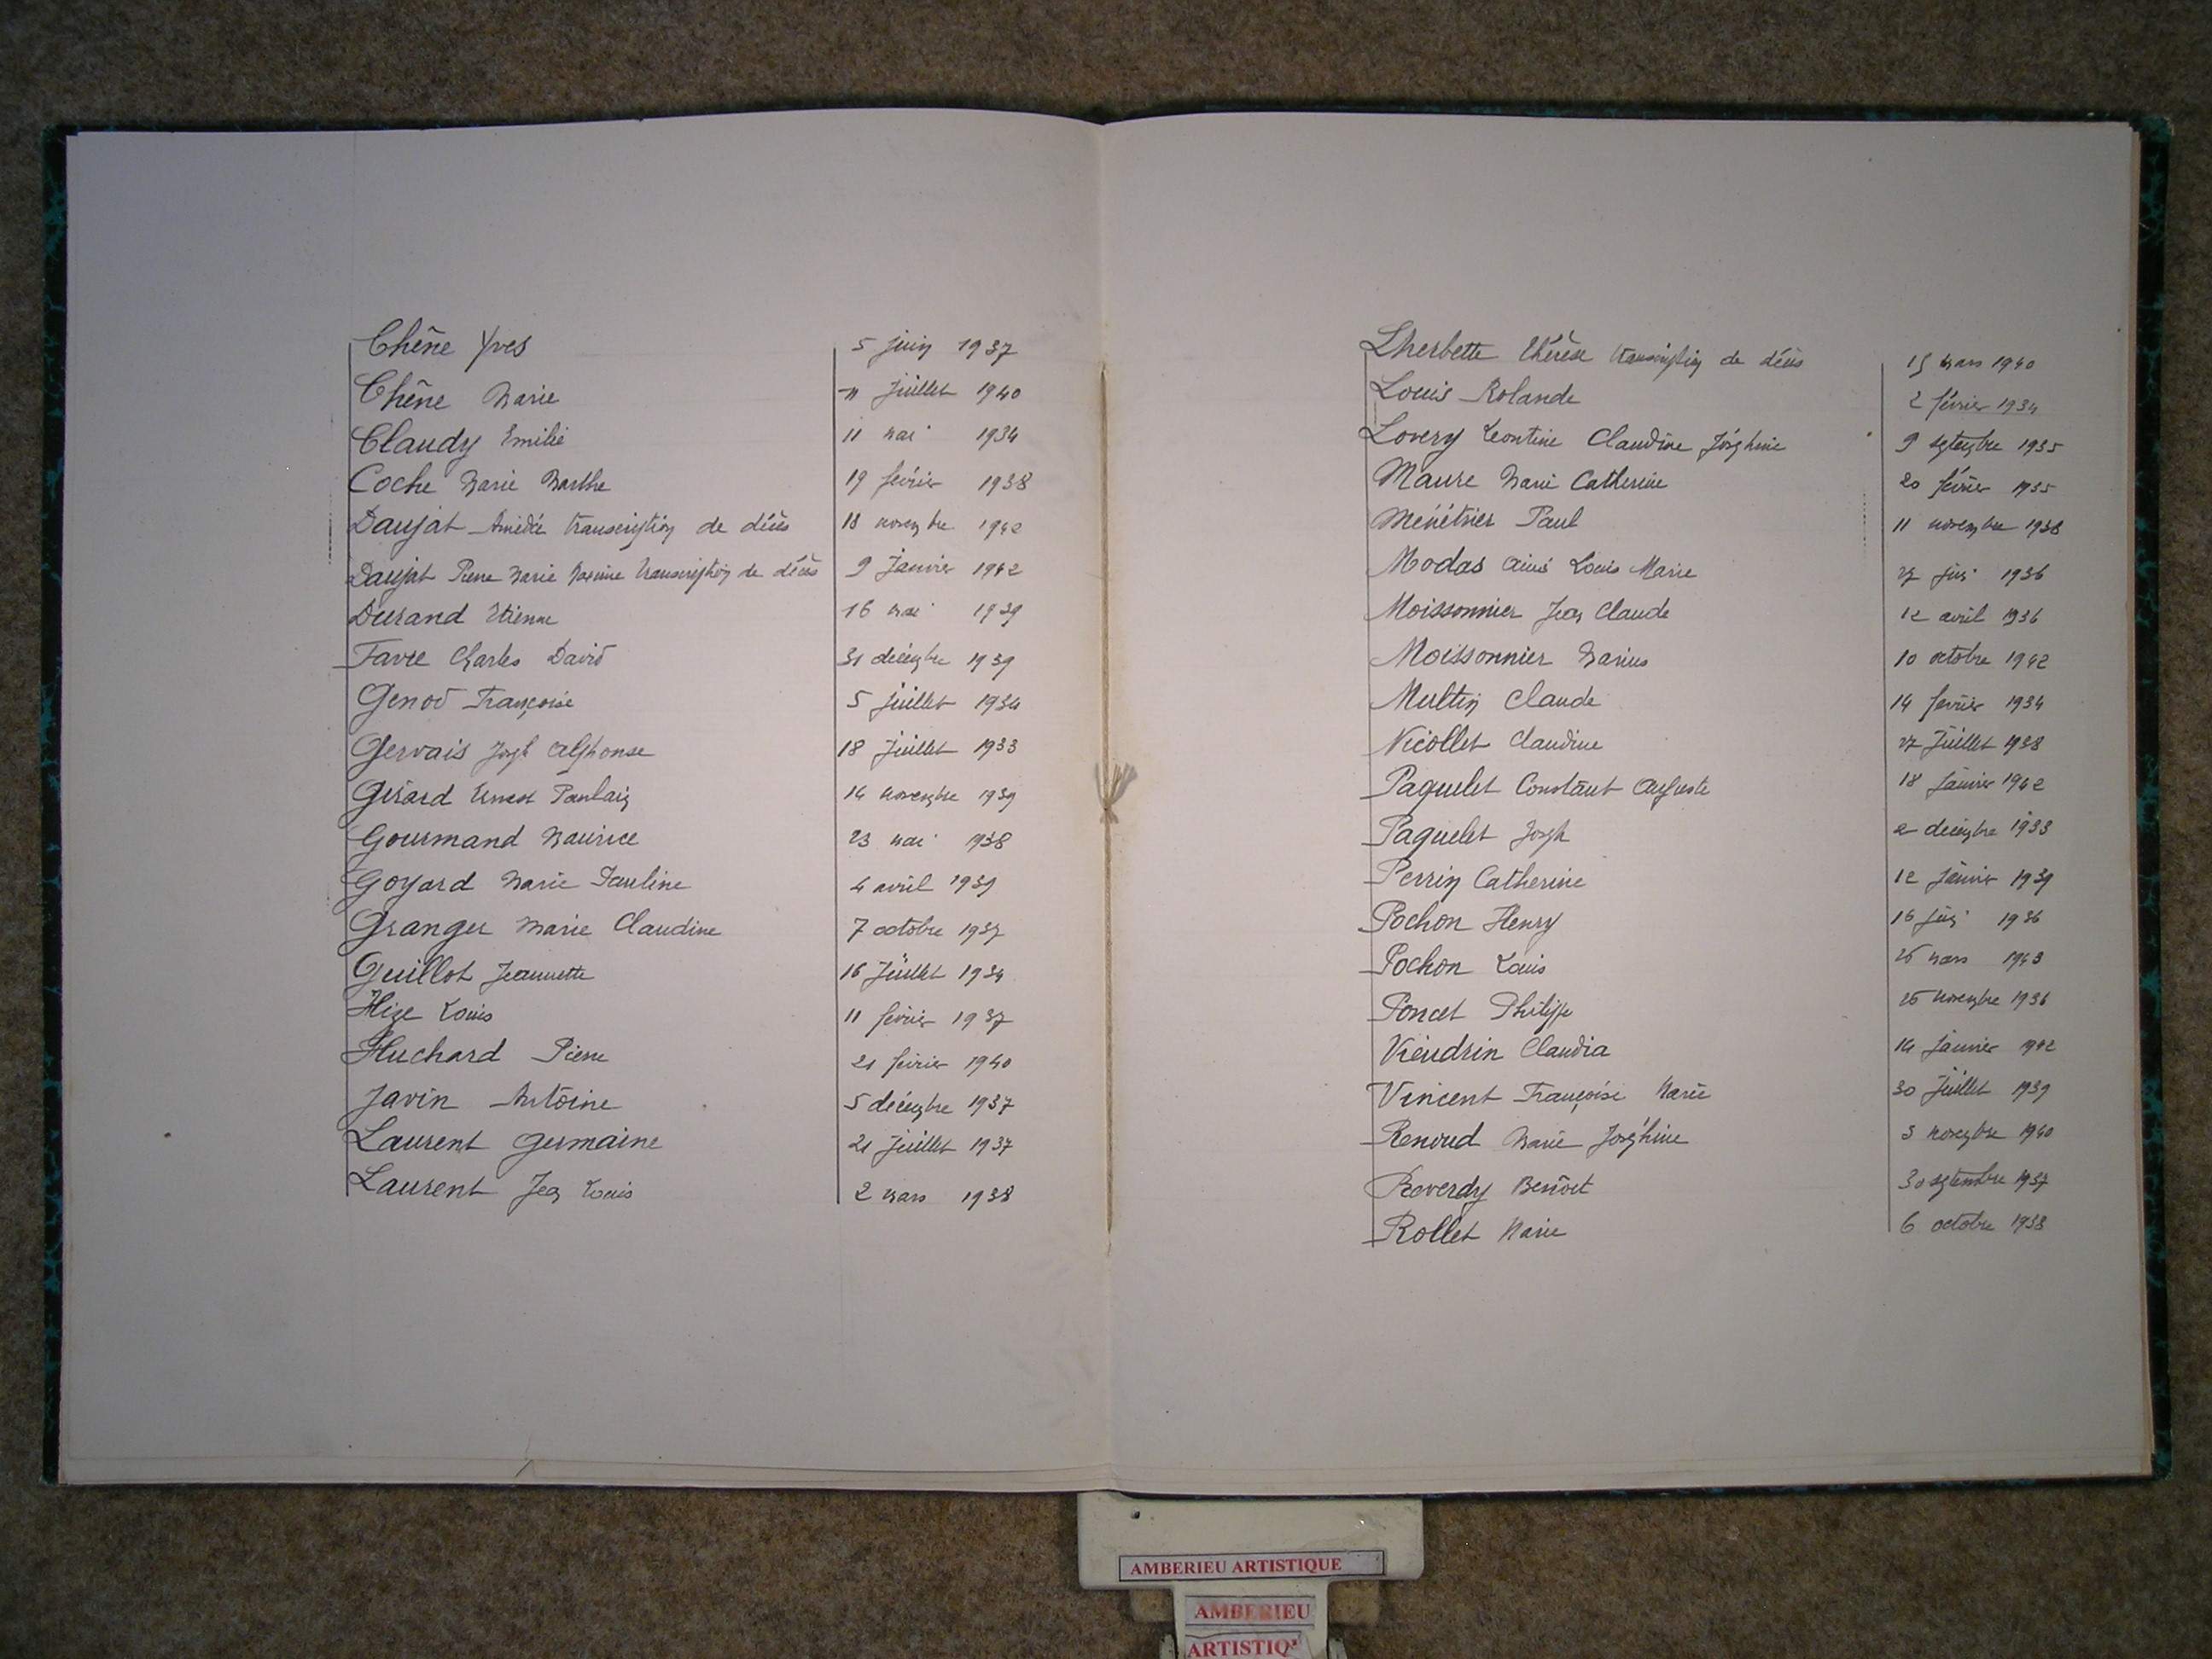 Chêne Yves 5 juin 1937
Chêne Marie 11 Juillet 1940
Claudy Emilie 11 mai 1934
Coche Marie Marthe 19 février 1938
Daujat Amédée transcription de décès 18 novembre 1942
Daujat Pierre Marie Maxime transcription de décès 9 Janvier 1942
Durand Etienne 16 mai 1939
Favre Charles David 31 décembre 1939
Genod Françoise 5 juillet 1934
Gervais Joseph Alphonse 18 Juillet 1933
Girard Ernest Paulain 14 novembre 1939
Gourmand Maurice 23 mai 1938
Goyard Marie Pauline 4 avril 1939
Granger Marie Claudine 7 octobre 1937
Guillot Jeannette 16 Juillet 1934
Hize Louis 11 février 1937
Huchard Pierre 21 février 1940
Javin Antoine 5 décembre 1937
Laurent Germaine 21 Juillet 1937
Laurent Jean Louis 2 mars 1938
Lherbette Thérèse transcription de décès 15 mars 1940
Louis Rolande 2 février 1934
Lovery Leontine Claudine Joséphine 9 septembre 1935
Maure Marie Catherine 20 février 1935
Ménétrier Paul 11 novembre 1938
Modas Aimé Louis Marie 27 juin 1936
Moissonnier Jean Claude 12 avril 1936
Moissonnier Marius 10 octobre 1942
Multin Claude 14 février 1934
Nicollet Claudine 27 Juillet 1938
Paquelet Constant Auguste 18 Janvier 1942
Paquelet Joseph 2 décembre 1933
Perrin Catherine 12 Janvier 1939
Pochon Henry 16 juin 1936
Pochon Louis 26 mars 1943
Poncet Philippe 25 novembre 1936
Vieudrin Claudia 14 Janvier 1942
Vincent Françoise Marie 30 Juillet 1939
Renoud Marie Joséphine 3 novembre 1940
Reverdy Benoît 30 septembre 1937
Rollet Marie 6 octobre 1938
AMBERIEU ARTISTIQUE
AMBERIEU
ARTISTIQ